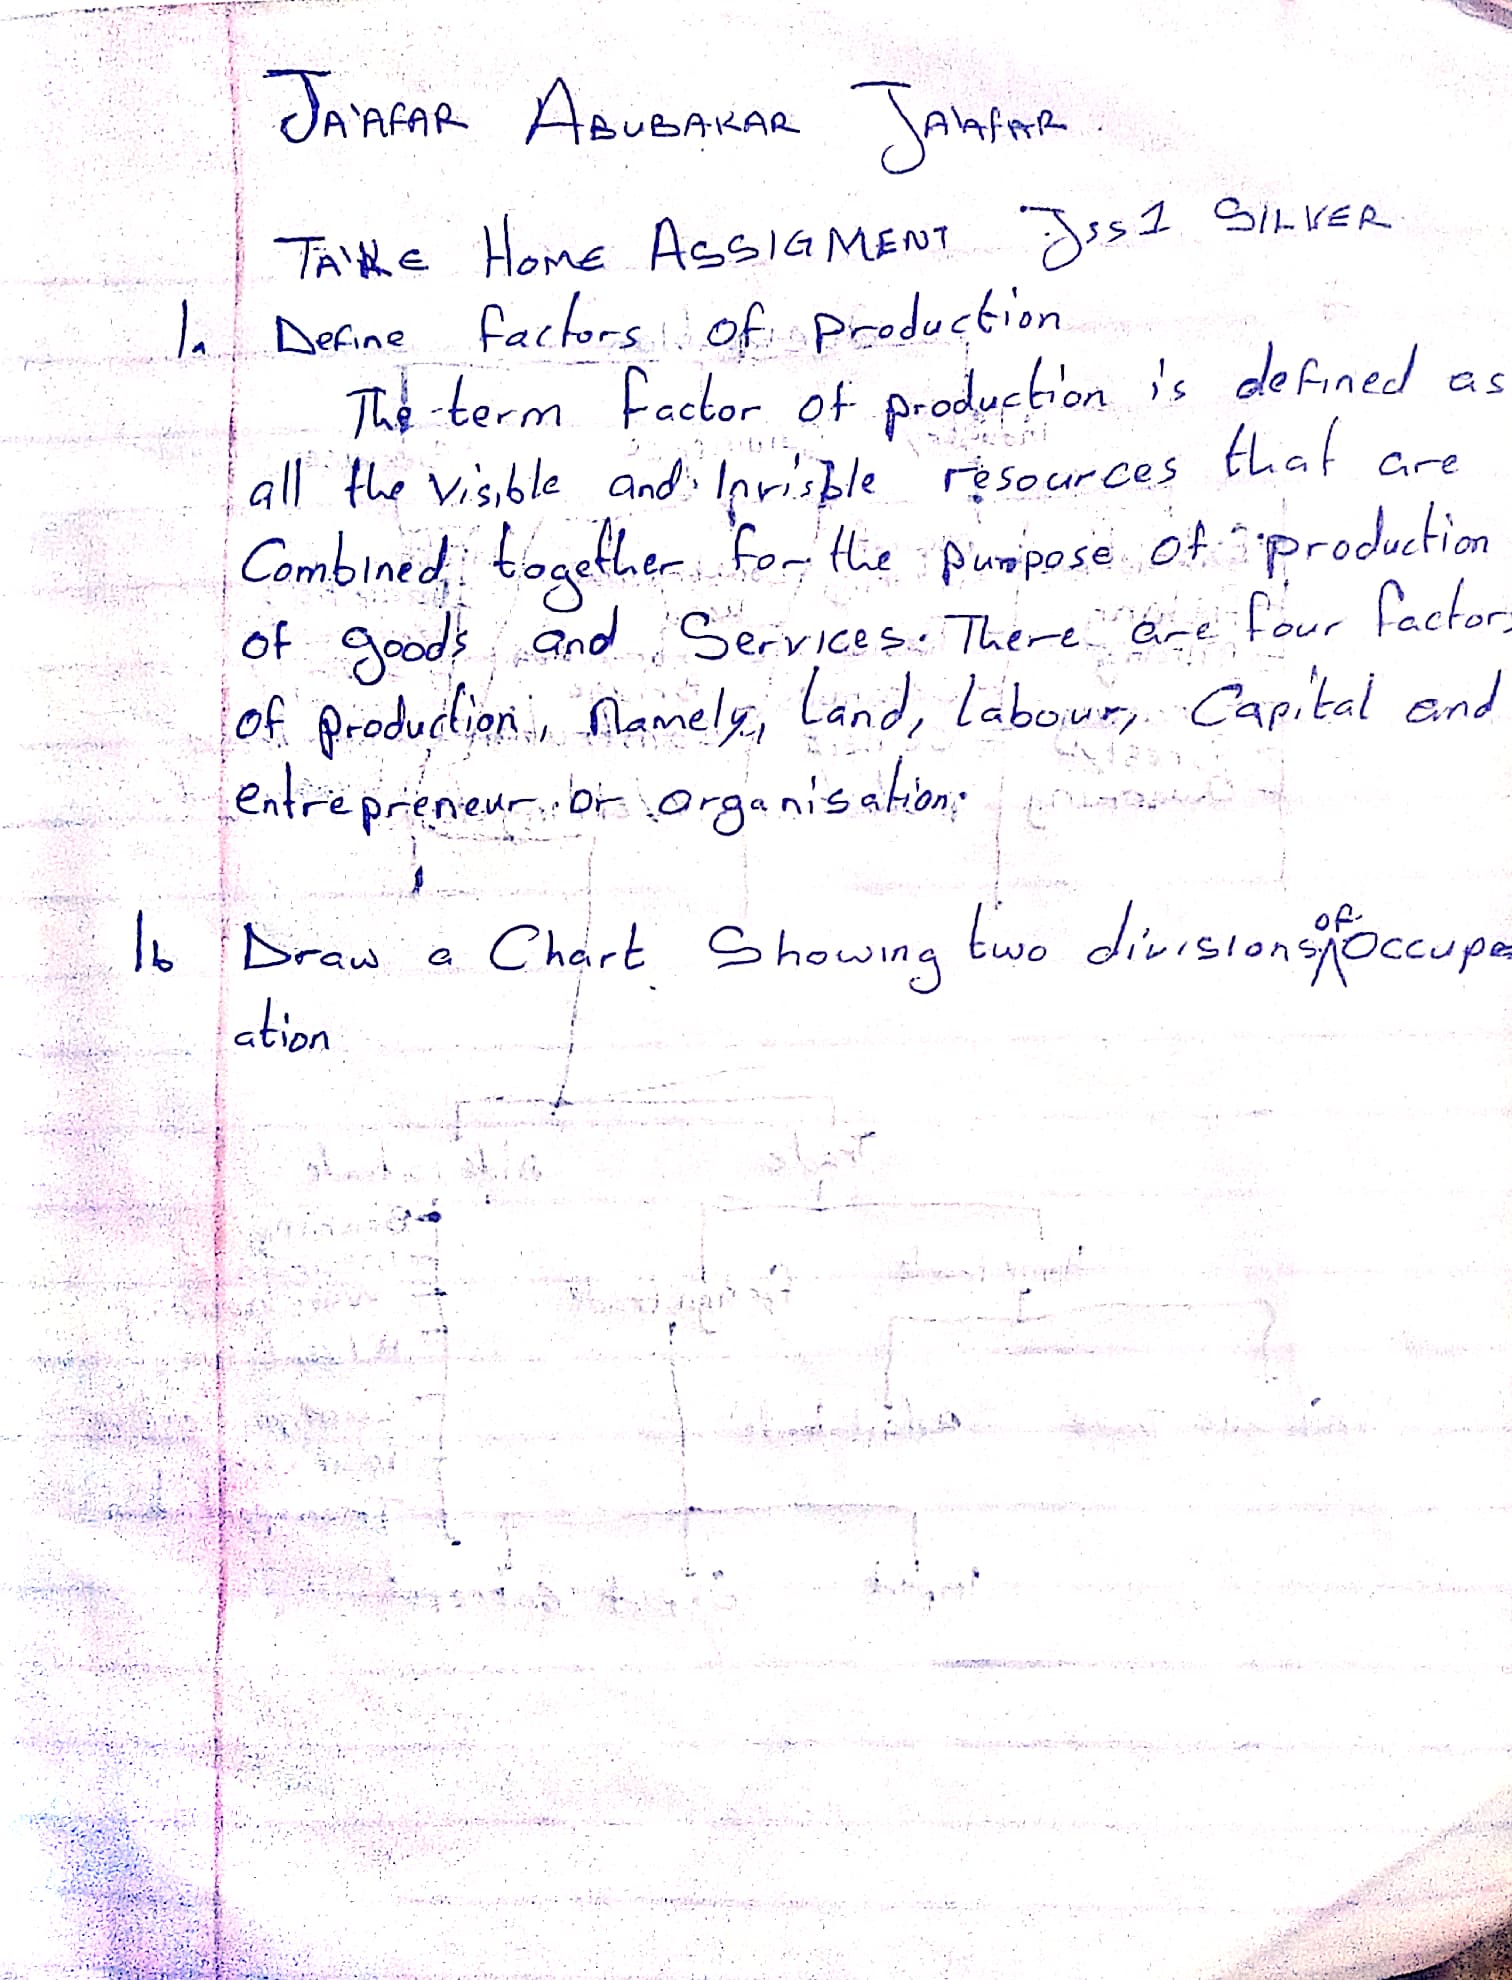 JA'AFAR ABUBAKAR JA'AFAR
TAKE HOME ASSIGMENT JSS1 SILVER
1a Define factors of production
The term factor of production is defined as
all the visible and Invisible resources that are
Combined together for the purpose of production
of goods and Services. There are four factors
of production, Namely, Land, labour, Capital and
entrepreneur or organisation.
1b Draw a Chart Showing two divisions of Occup
ation